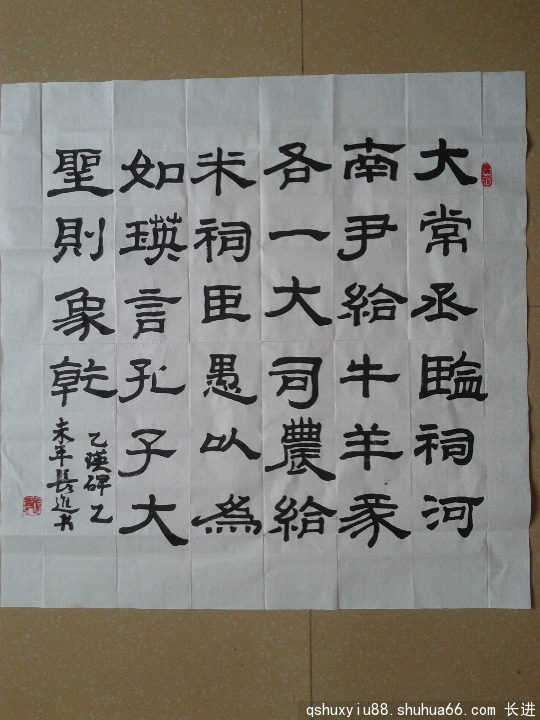 大常丞臨祠河
南尹給牛羊豕
各一大司農給
米祠臣愚以為
如瑛言孔子大
聖則象乾
乙瑛碑乙
未年長進书
qshuxyiu88.shuhua66.com 长进